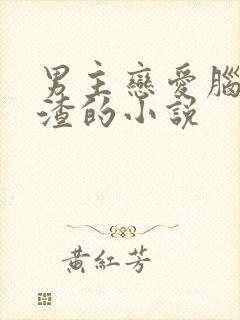 男主戀愛腦
渣的小說
黃紅芳